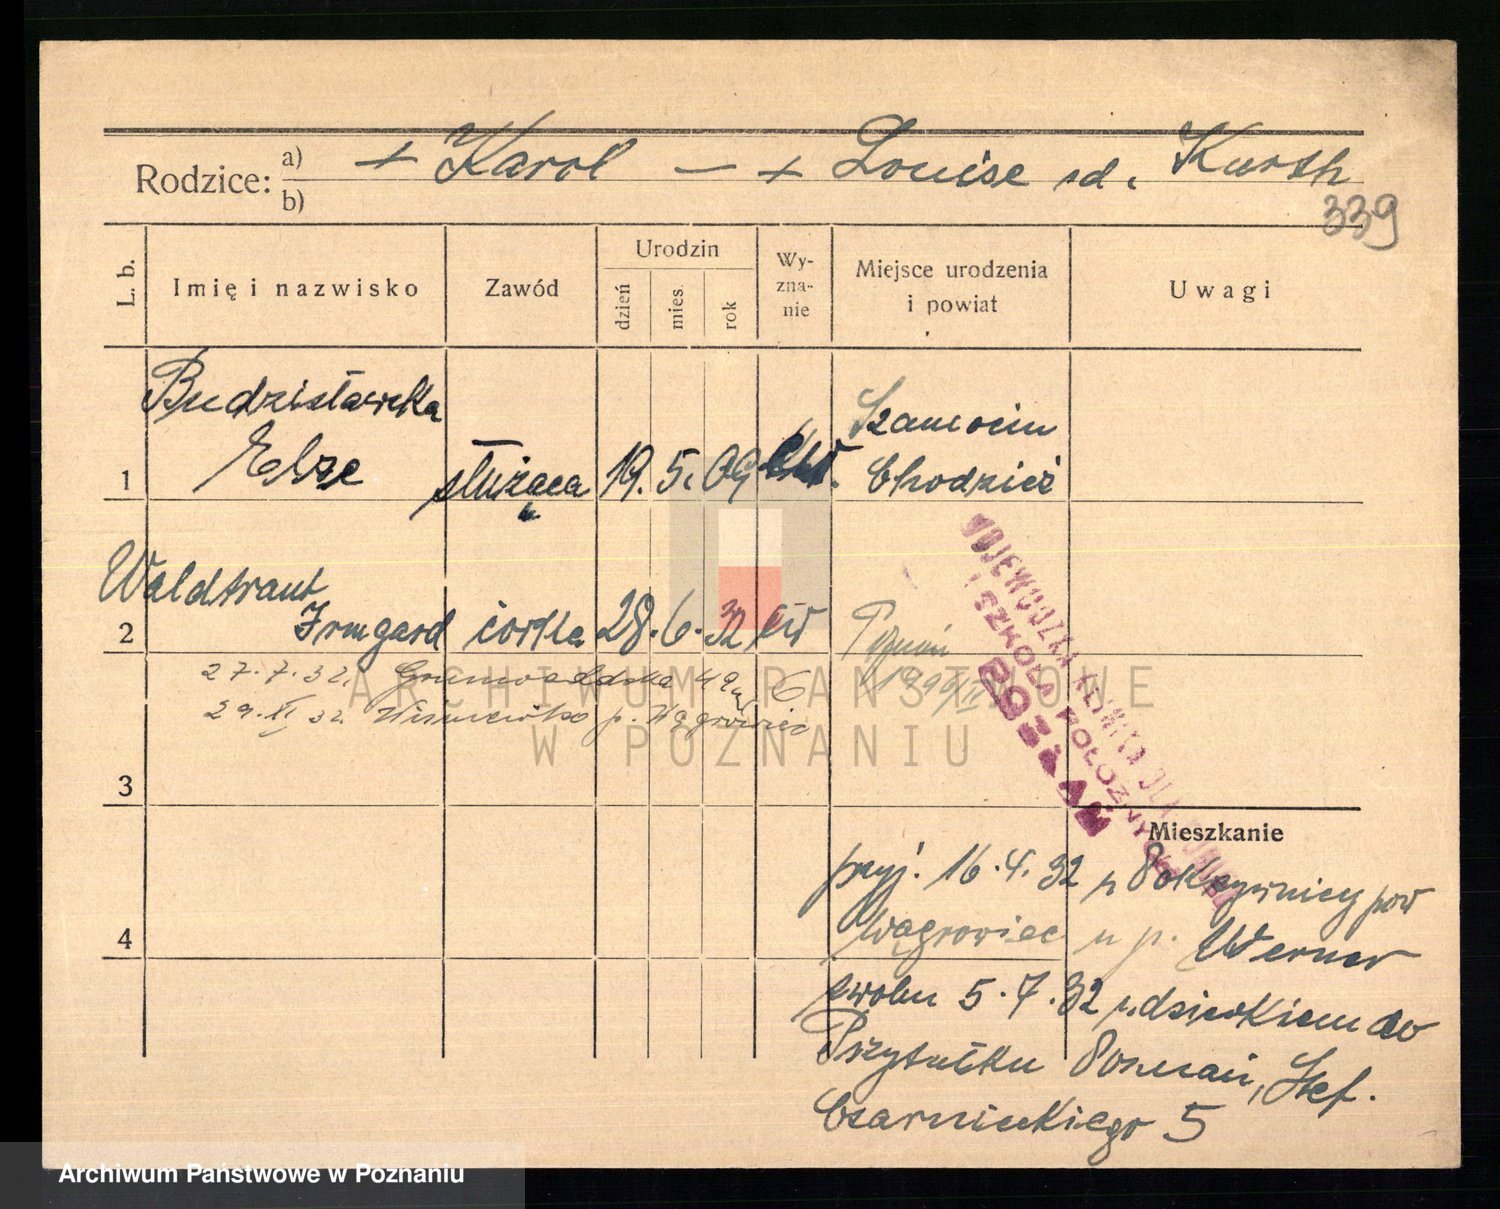 Rodzice: a) + Karol — + Louise zd. Kursh
b)
339
L. b.
Imię i nazwisko
Zawód
Urodzin
dzień
mies.
rok
Wy-
zna-
nie
Miejsce urodzenia
i powiat
Uwagi
Budzisławska
Elze
1
służąca 19. 5. 09 ew.
Szamocin
Chodzież
Waldtraut
2 Irmgard córka 28. 6. 32 ew
Poznań
27.7.32. Grunwaldska 49
29.XI 32. p. Wągrowiec
3
4
WOJEWÓDZKA KLINIKA DLA
I SZKOŁA POŁOŻNYCH
POZNAŃ
Mieszkanie
przyj. 16.4.32 z Pokrzywnicy pow
Wągrowiec u p. Werner
zwoln 5.7.32 z dzieckiem do
Przytułku Poznań, Stef.
Czarnieckiego 5
ARCHIWUM PAŃSTWOWE
W POZNANIU
Archiwum Państwowe w Poznaniu